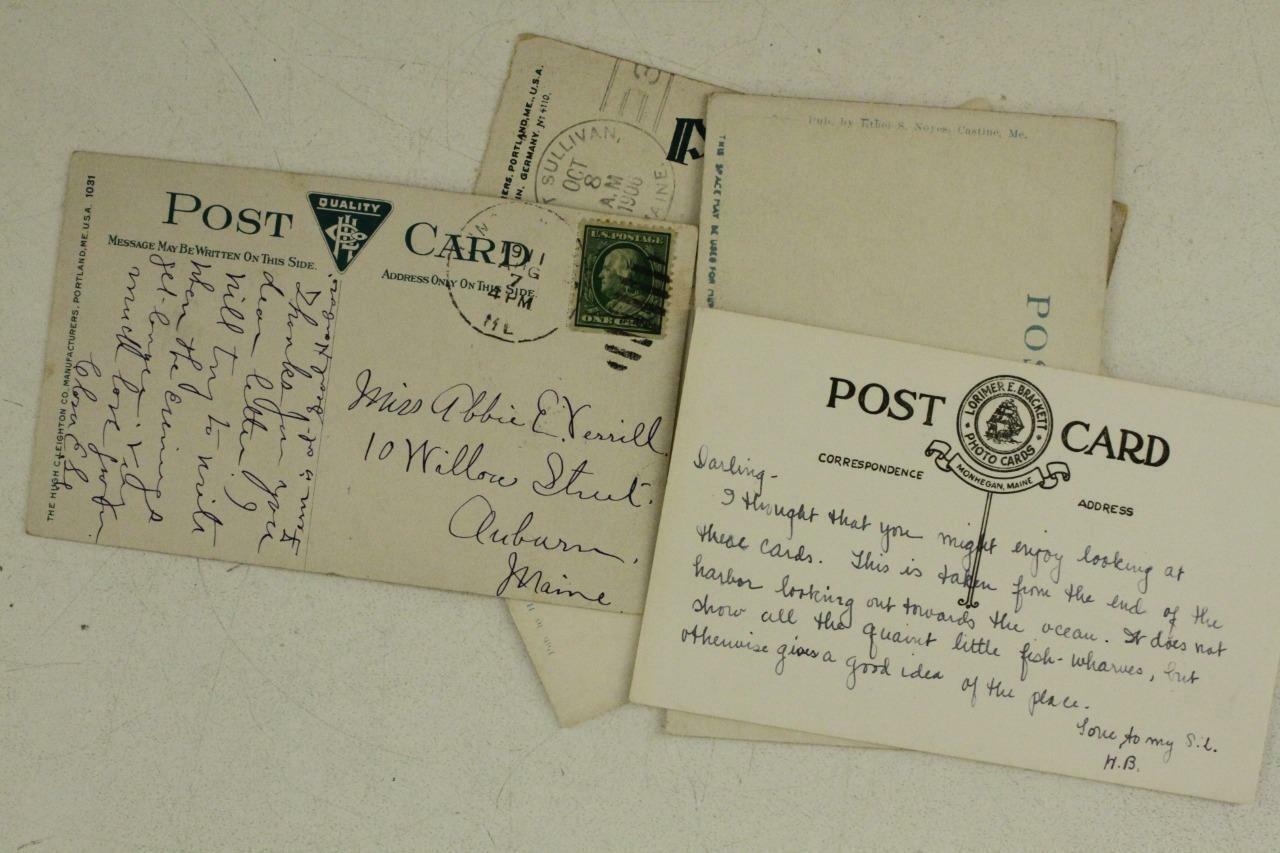 POST CARD
QUALITY
MESSAGE MAY BE WRITTEN ON THIS SIDE.
ADDRESS ONLY ON THIS SIDE
THE HUGH C. LEIGHTON CO., MANUFACTURERS, PORTLAND, ME. U.S.A. 1031
Thanks for your
dear letter. I
will try to write
when the evenings
get longer
much love from
1911
7
4 PM
ME
U.S. POSTAGE
ONE
Miss Abbie E. Verrill.
10 Willow Street.
Auburn,
Maine.
ERS, PORTLAND, ME., U.S.A.
IN GERMANY. No 4110.
SULLIVAN,
OCT
8
A.M
1906
MAINE.
Pub. by Ethel S. Noyes, Castine, Me.
THIS SPACE MAY BE USED FOR
POS
POST CARD
LORIMER E. BRACKETT
PHOTO CARDS
MONHEGAN, MAINE
CORRESPONDENCE
ADDRESS
Darling-
I thought that you might enjoy looking at
these cards. This is taken from the end of the
harbor looking out towards the ocean. It does not
show all the quaint little fish-wharves, but
otherwise gives a good idea of the place.
Love to my S.L.
H.B.